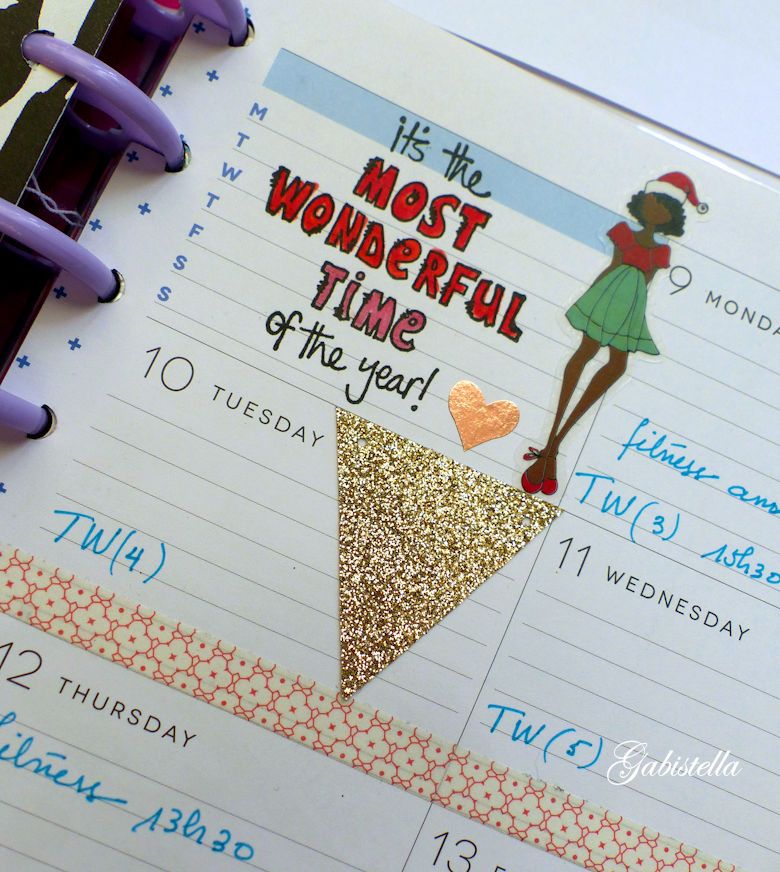 it's the
MOST
WONDERFUL
TIME
of the year!
M
T
W
T
F
S
S
9 MONDA
fitness
TW(3) 15h30
10 TUESDAY
TW(4)
11 WEDNESDAY
TW(5)
12 THURSDAY
fitness 13h30
13
Gabistella